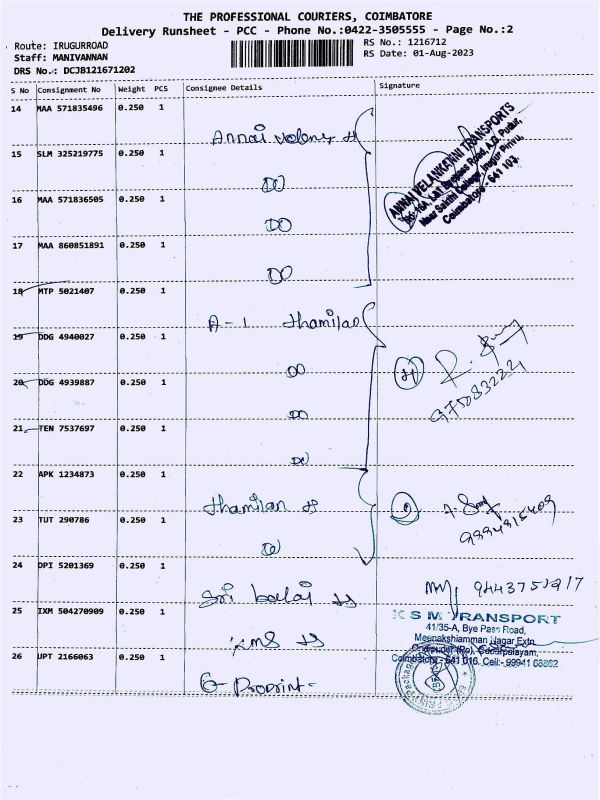 THE PROFESSIONAL COURIERS, COIMBATORE
Delivery Runsheet - PCC - Phone No.:0422-3505555 - Page No.:2
Route: IRUGURROAD
RS No.: 1216712
Staff: MANIVANNAN
RS Date: 01-Aug-2023
DRS No.: DCJB121671202
S No Consignment No Weight PCS Consignee Details Signature
14 MAA 571835496 0.250 1
Annai
15 SLM 325219775 0.250 1
DO
16 MAA 571836505 0.250 1
DO
17 MAA 860851891 0.250 1
DO
ANNAI VELANKANNI TRANSPORTS
Coimbatore - 641 103.
18 MTP 5021407 0.250 1
A-1 thamilan
19 DDG 4940027 0.250 1
DO
20 DDG 4939887 0.250 1
DO
9750832221
21 TEN 7537697 0.250 1
DO
22 APK 1234873 0.250 1
thamilan
23 TUT 290786 0.250 1
DO
24 DPI 5201369 0.250 1
Sri balaj
25 IXM 504270909 0.250 1
KMS
K S M TRANSPORT
41/35-A, Bye Pass Road,
Meenakshiamman Nagar Extn.
Coimbatore - 641 016. Cell:- 99941 68862
26 UPT 2166063 0.250 1
G- Proprint-